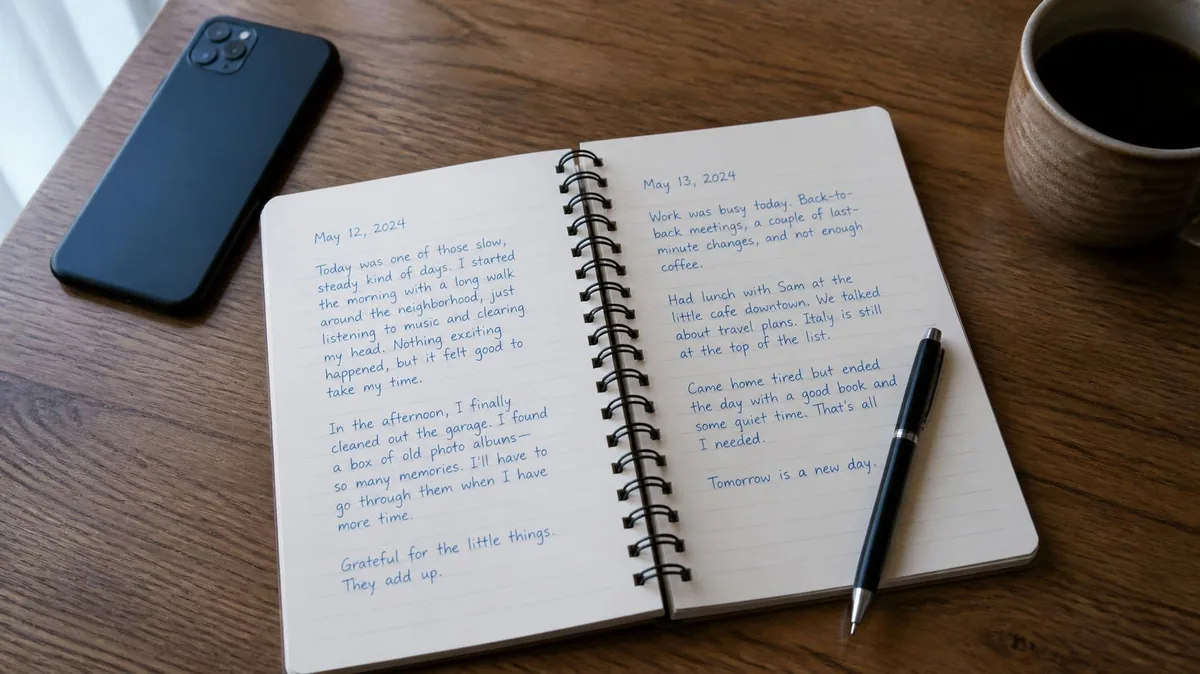 May 12, 2024
Today was one of those slow,
steady kind of days. I started
the morning with a long walk
around the neighborhood, just
listening to music and clearing
my head. Nothing exciting
happened, but it felt good to
take my time.
In the afternoon, I finally
cleaned out the garage. I found
a box of old photo albums—
so many memories. I'll have to
go through them when I have
more time.
Grateful for the little things.
They add up.
May 13, 2024
Work was busy today. Back-to-
back meetings, a couple of last-
minute changes, and not enough
coffee.
Had lunch with Sam at the
little cafe downtown. We talked
about travel plans. Italy is still
at the top of the list.
Came home tired but ended
the day with a good book and
some quiet time. That's all
I needed.
Tomorrow is a new day.